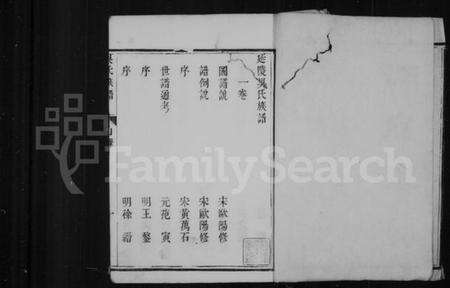 延陵吳氏族譜
一卷
圖譜說 宋歐陽修
譜例說 宋歐陽修
序 宋黃萬石
世譜通考 元范寅
序 明王鏊
序 明徐
FamilySearch